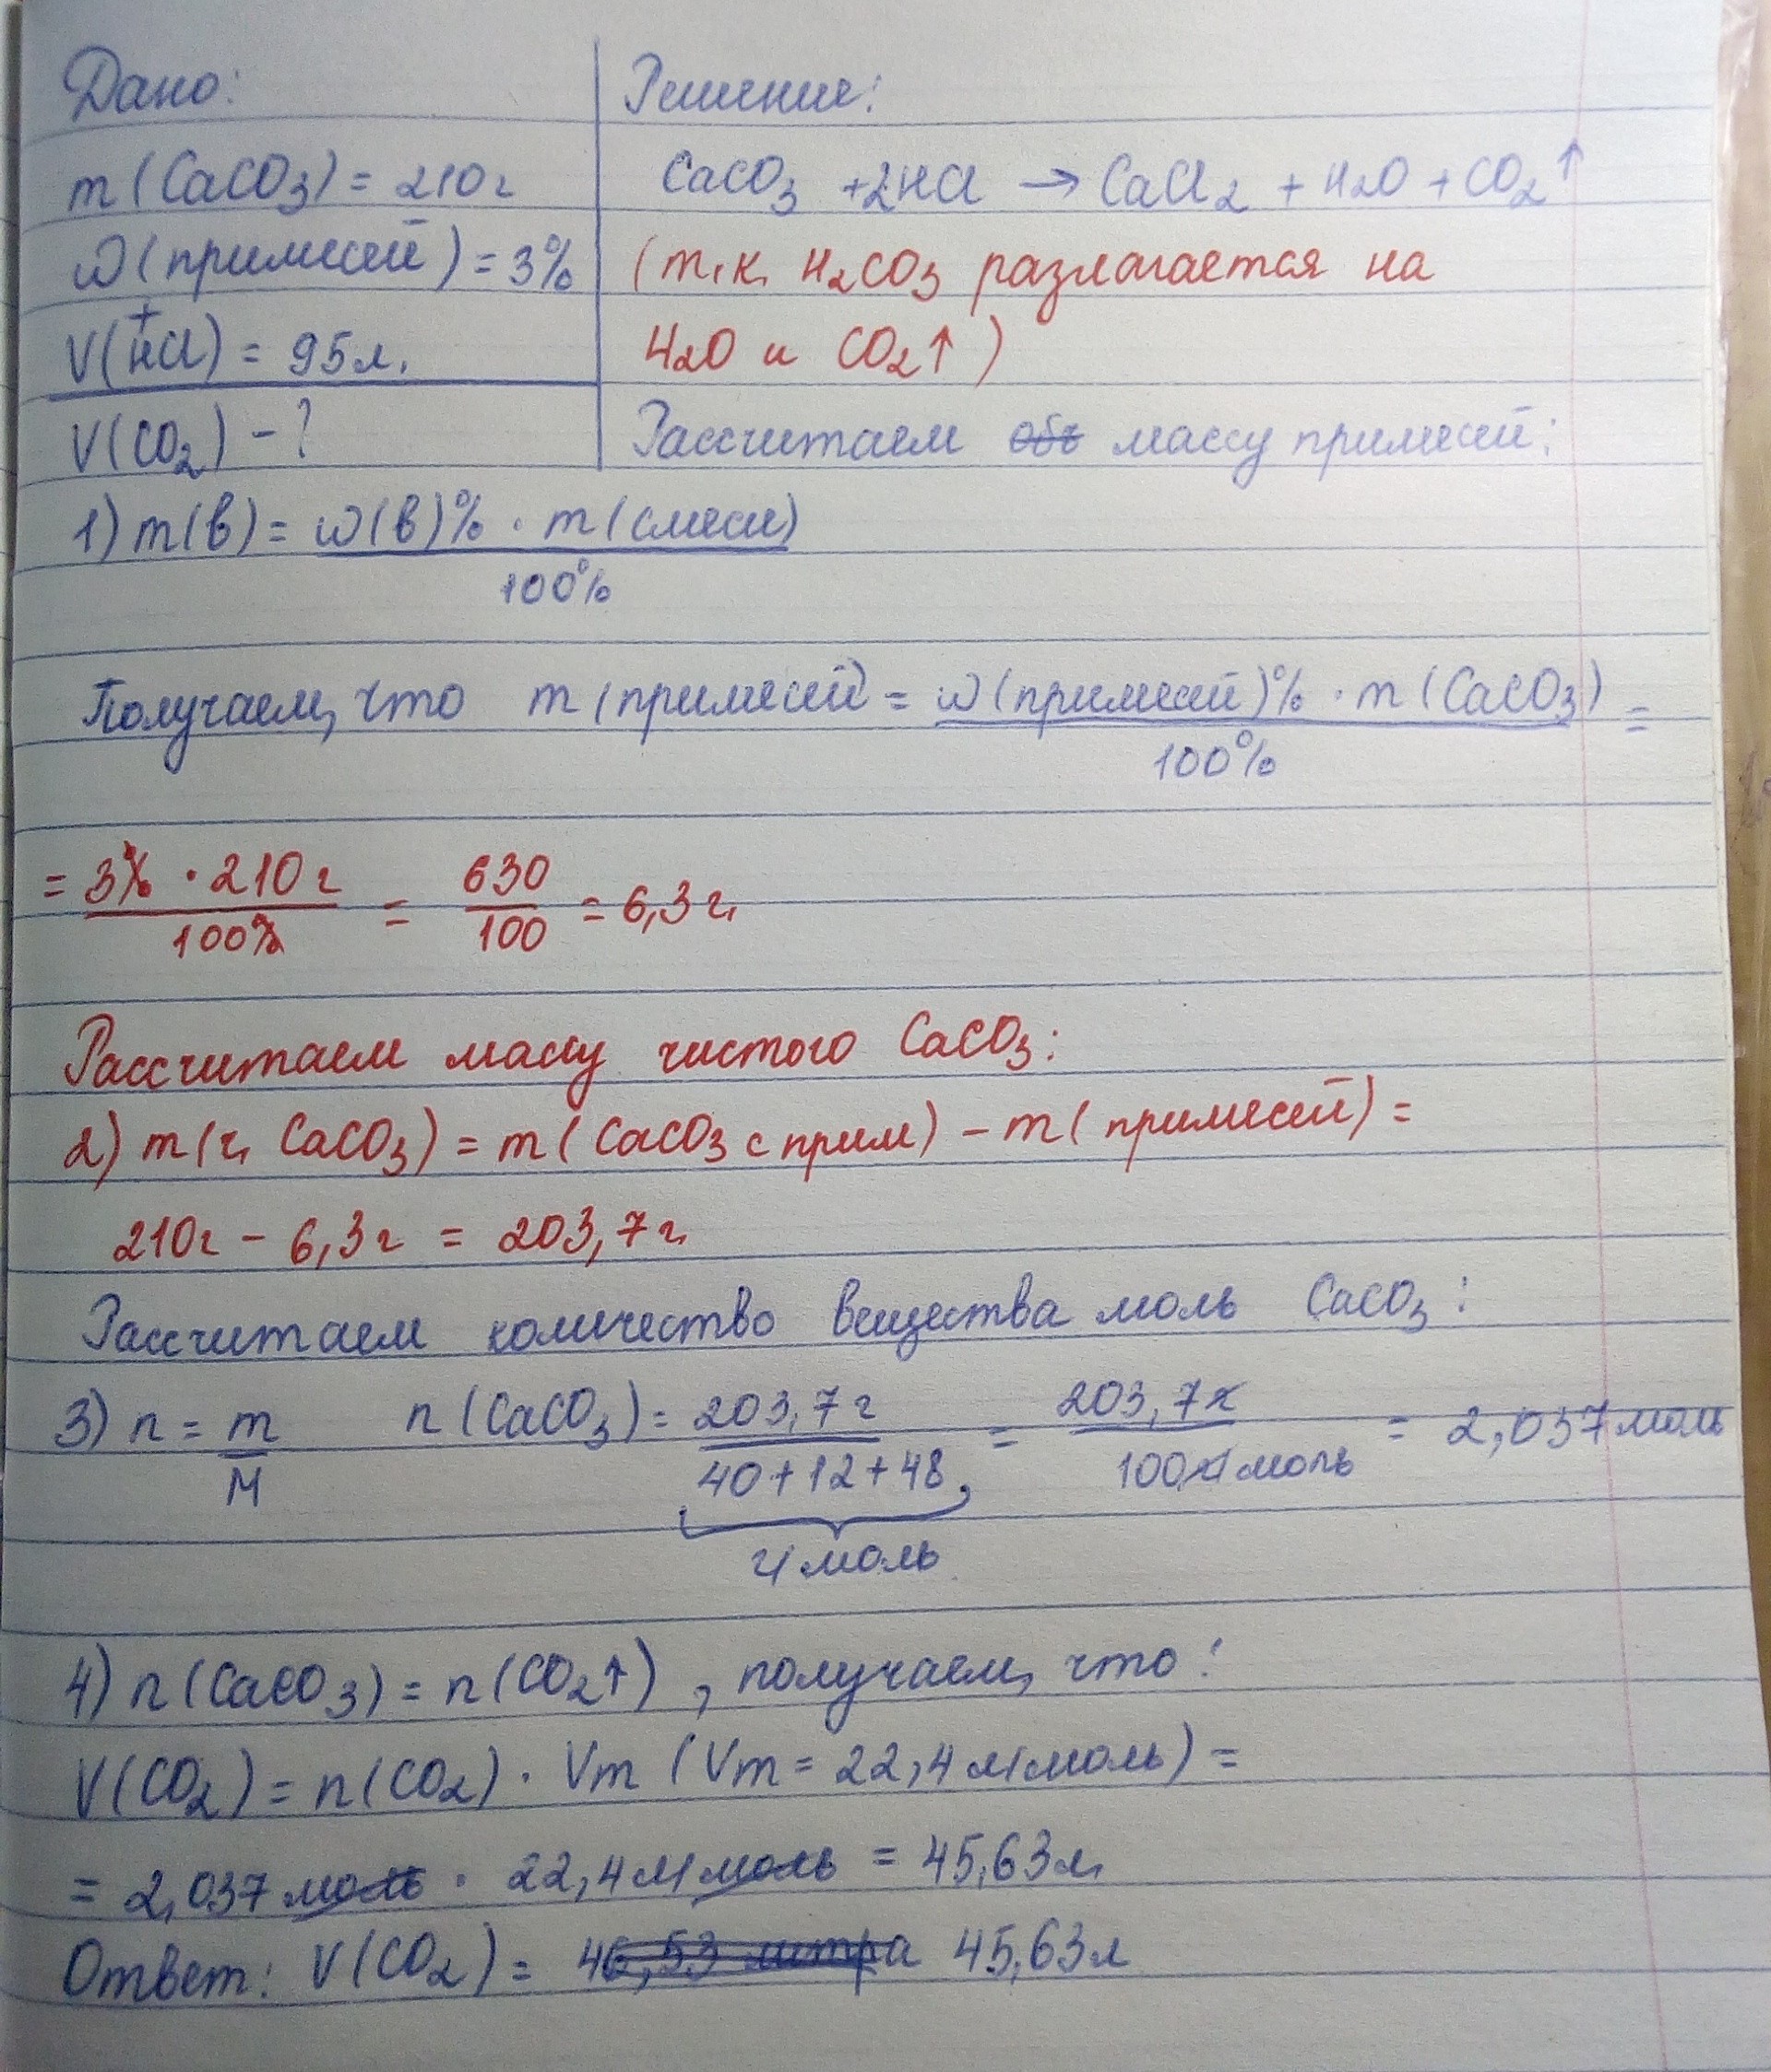 Дано:
Решение:
m(CaCO3) = 210г
CaCO3 + 2HCl → CaCl2 + H2O + CO2↑
ω(примесей) = 3%
(т.к. H2CO3 разлагается на
V(HCl) = 95л.
H2O и CO2↑)
V(CO2) - ?
Рассчитаем массу примесей:
1) m(в) = ω(в)% · m(смеси)
100%
Получаем, что m(примесей) = ω(примесей)% · m(CaCO3) =
100%
= 3% · 210г = 630 = 6,3г.
100% 100
Рассчитаем массу чистого CaCO3:
2) m(ч. CaCO3) = m(CaCO3 с прим) - m(примесей) =
210г - 6,3г = 203,7г.
Рассчитаем количество вещества моль CaCO3:
3) n = m n(CaCO3) = 203,7г = 203,7г = 2,037 моль
M 40+12+48 100г/моль
г/моль
4) n(CaCO3) = n(CO2↑), получаем, что:
V(CO2) = n(CO2) · Vm (Vm = 22,4 л/моль) =
= 2,037 моль · 22,4 л/моль = 45,63л.
Ответ: V(CO2) = 46,53 литра 45,63л